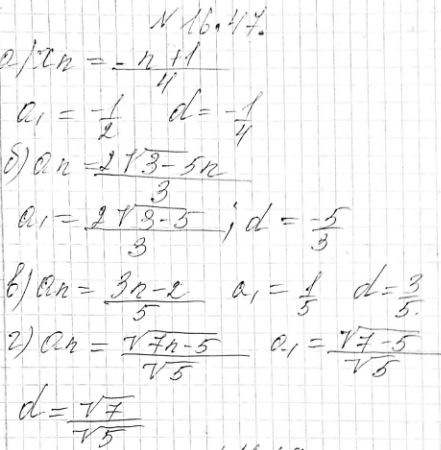 N 16.47.
а) xn = -(n+1)/4
a₁ = -1/2 d = -1/4
б) an = (2√3-5n)/3
a₁ = (2√3-5)/3 ; d = -5/3
в) an = (3n-2)/5 a₁ = 1/5 d = 3/5.
г) an = (√7n-5)/√5 a₁ = (√7-5)/√5
d = √7/√5